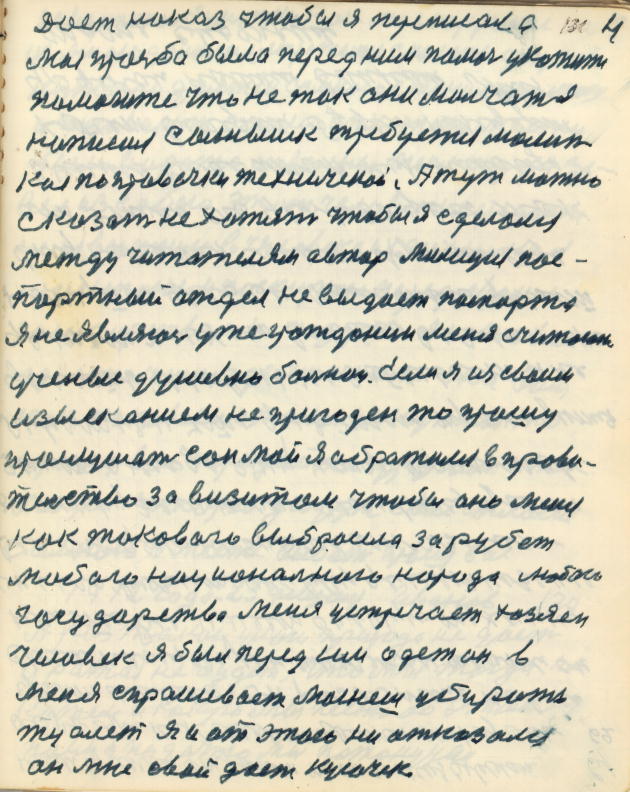 Дает наказ чтобы я переписал а 131 4
Моя прозба была перед ним помоч укотити
помогите что не так они молчат я
написал Солнышк требуется мален
кая поправочка технической. А тут можно
сказат не хотят чтобы я сделался
между читателям автор Милиция пас-
портный отдел не выдает паспорта
Я не являюс уже гражданин меня считают
ученые душевно болной. Если я из своим
изысканием не пригоден то прошу
прослушат сон мой Я обратился в прави-
телство за визитом чтобы оно меня
как такового выбросила за рубеж
любого национального народа любого
государства меня встречает хозяен
человек я был перед им одет он в
меня спрашивает можеш убирать
туалет я и от этого ни отказался
он мне свой дает кусочек